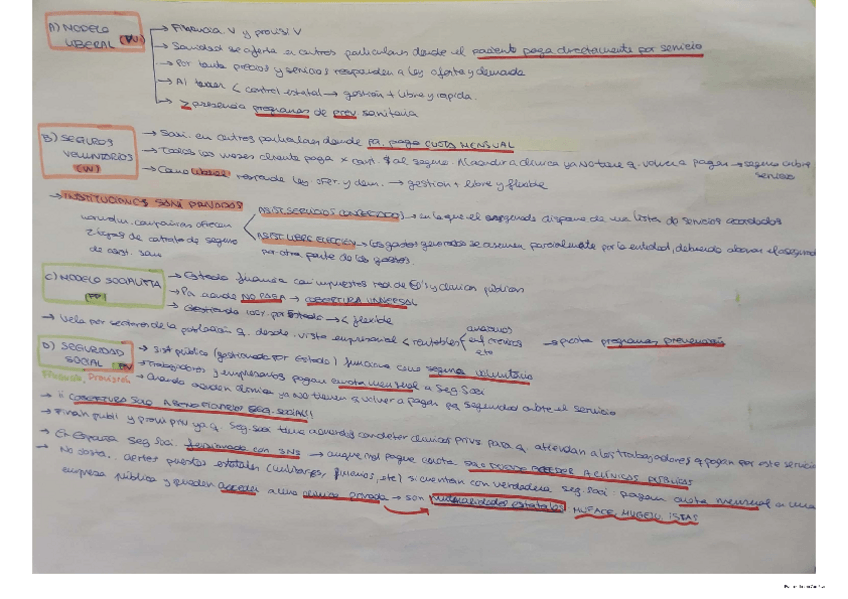 A) MODELO LIBERAL (VV)
→ Financia V y provisi V
→ Sanidad se oferta en centros particulares donde el paciente paga directamente por servicio
→ Por tanto precios y servicios responden a ley oferta y demanda
→ Al tener < control estatal → gestión + libre y rápida.
→ presencia programas de prev sanitaria
B) SEGUROS VOLUNTARIOS (VV)
→ Sani. en centros particulares donde pa. paga CUOTA MENSUAL
→ Todos los meses cliente paga x cant. $ al seguro. Al acudir a clínica ya NO tiene q. volver a pagar → seguro cubre servicio
→ Como liberal responde ley ofer. y dem. → gestión + libre y flexible
→ INSTITUCIONES SANI PRIVADAS
ASIST. SERVICIOS CONCERTADOS → en la que el asegurado dispone de una lista de servicios acordados
compañías ofrecen
2 tipos de contrato de seguro
de asist. sani
ASIST. LIBRE ELECCIÓN → los gastos generados se asumen parcialmente por la entidad, debiendo abonar el asegurado
por otra parte de los gastos.
C) MODELO SOCIALISTA (PP)
→ Estado financia con impuestos red de y clínicas públicas
→ Pa. acude NO PAGA → COBERTURA UNIVERSAL
→ Gestionado por Estado → < flexible
→ Vela por sectores de la población q. desde. vista empresarial < rentables
ancianos
enf crónicos
etc
→ programas prevención
D) SEGURIDAD SOCIAL PV
Financia, Provisión
→ Sist público (gestionado por Estado) funciona como seguro voluntario
→ Trabajadores y empresarios pagan cuota mensual a Seg. Soci
→ Cuando acuden clínica ya NO tienen q volver a pagar pq Seguridad cubre el servicio
→ ¡¡ COBERTURA SOLO A BENEFICIARIOS SEG. SOCIAL!!
→ Finan publ y provi priv ya q. Seg. Soci tiene acuerdos con clínicas privs para q. atiendan a los trabajadores q pagan por este servicio
→ En España Seg Soci. fusionada con SNS → aunque no pague cuota se puede acceder A CLÍNICAS PÚBLICAS
→ No ciertos puestos estatales (militares, funcios, etc) si cuentan con verdadera seg. soci: pagan cuota mensual a una
empresa pública y pueden acceder a una clínica privada → son mutualidades estatales MUFACE, MUGEJU, ISFAS